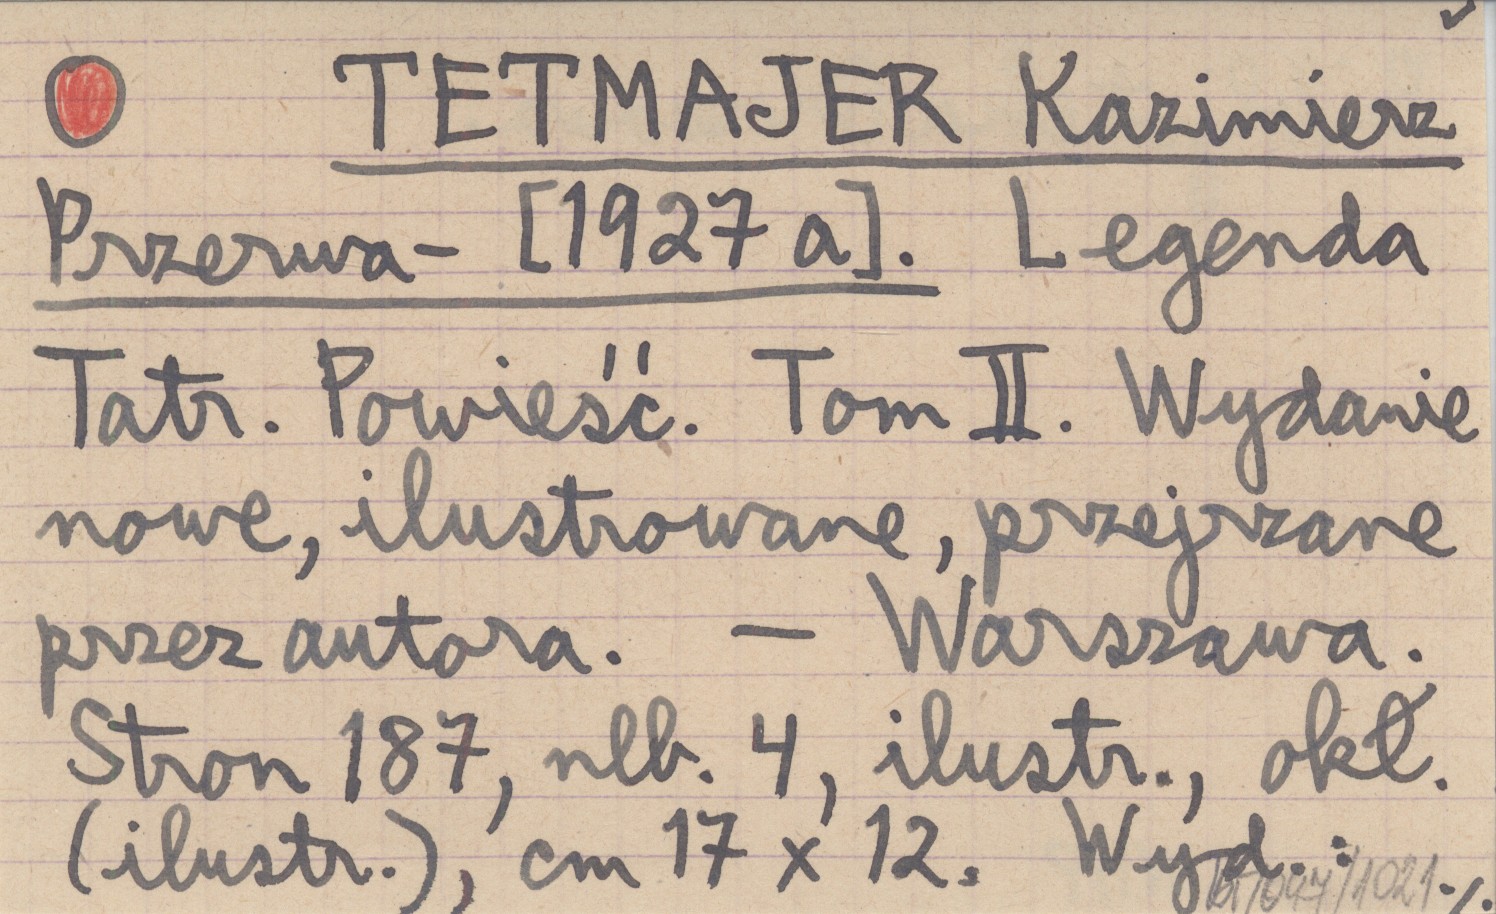 TETMAJER Kazimierz
Przerwa- [1927 a]. Legenda
Tatr. Powieść. Tom II. Wydanie
nowe, ilustrowane, przejrzane
przez autora. — Warszawa.
Stron 187, nlb. 4, ilustr., okł.
(ilustr.), cm 17 x 12. Wyd.: ./.